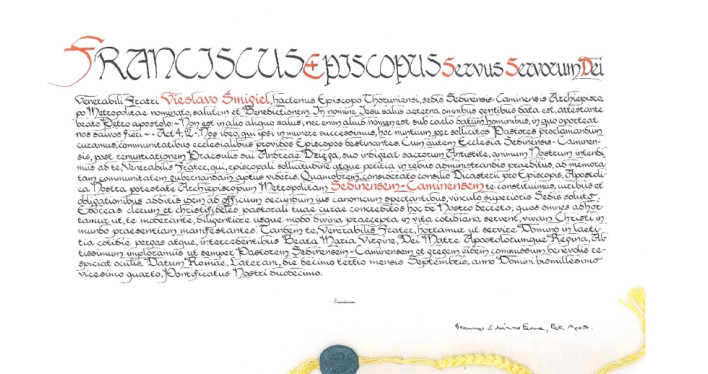 FRANCISCUS EPISCOPUS Servus Servorum Dei
Venerabili Fratri Vieslavo Śmigiel, hactenus Episcopo Thoruniensi, sedis Sedinensis-Caminensis Archiepisco-
po Metropolitae nominato, salutem et Benedictionem. In nomine Iesu salus aeterna omnibus gentibus data est, attestante
beato Petro apostolo: «Non est in alio aliquo salus, nec enim aliud nomen est sub caelo datum hominibus, in quo oporteat
nos salvos fieri» - Act 4, 12. Nos ideo, qui ipsi in munere successimus, hoc nuntium per sollicitos Pastores proclamandum
curamus, communitatibus ecclesialibus providos Episcopos destinantes. Cum autem Ecclesia Sedinensis-Caminen-
sis, post renuntiationem Praesulis sui Andreae Dzięga, suo indigeat sacrorum Antistite, animum Nostrum intendi-
mus ad te, Venerabilis Frater, qui, episcopali sollicitudine atque peritia in rebus administrandis praeditus, ad memora-
tam communitatem gubernandam aptus videris. Quamobrem, consulto consilio Dicasterii pro Episcopis, Apostoli-
ca Nostra potestate Archiepiscopum Metropolitam Sedinensem-Caminensem te constituimus, iuribus et
obligationibus additis idem ad officium secundum ius canonicum spectantibus, vinculo superioris Sedis soluto.
Edoceas clerum et christifideles pastorali tuae curae concreditos hoc de Nostro decreto, quos omnes adhor-
tamur ut, te moderante, diligentiore usque modo divina praecepta in vita cotidiana servent, vivam Christi in
mundo praesentiam manifestantes. Tandem te, Venerabilis Frater, hortamur ut servire Domino in laeti-
tia cotidie pergas atque, intercedentibus Beata Maria Virgine, Dei Matre Apostolorumque Regina, Al-
tissimum imploramus ut semper Pastorem Sedinensem-Caminensem et gregem eidem commissum benevolis re-
spiciat oculis. Datum Romae, Laterani, die decimo tertio mensis Septembris, anno Domini bismillesimo
vicesimo quarto, Pontificatus Nostri duodecimo.
Franciscus